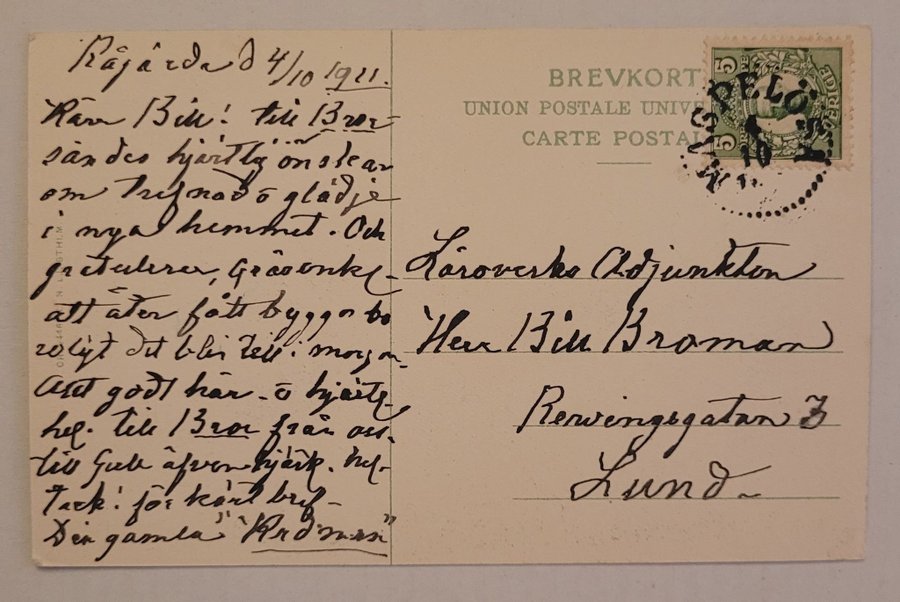 Rågårda d 4/10 1911.
Käre Bill! till Bror
sändes hjärtlig önskan
om trefnad o glädje
i nya hemmet. Och
gratulerar, Gräsenkl-
att åter fått bygga bo
roligt det blir till i morgon
Allt godt här - o hjärtl.
hel. till Bror från oss.
till Gull äfven hjärtl. hel-
Tack! för kärt bref-
Din gamla
BREVKORT
UNION POSTALE UNIVE
CARTE POSTAL
5
5
SPELÖSA
4
10
11
Läroverks Adjunkten
Herr Bill Broman
Lund